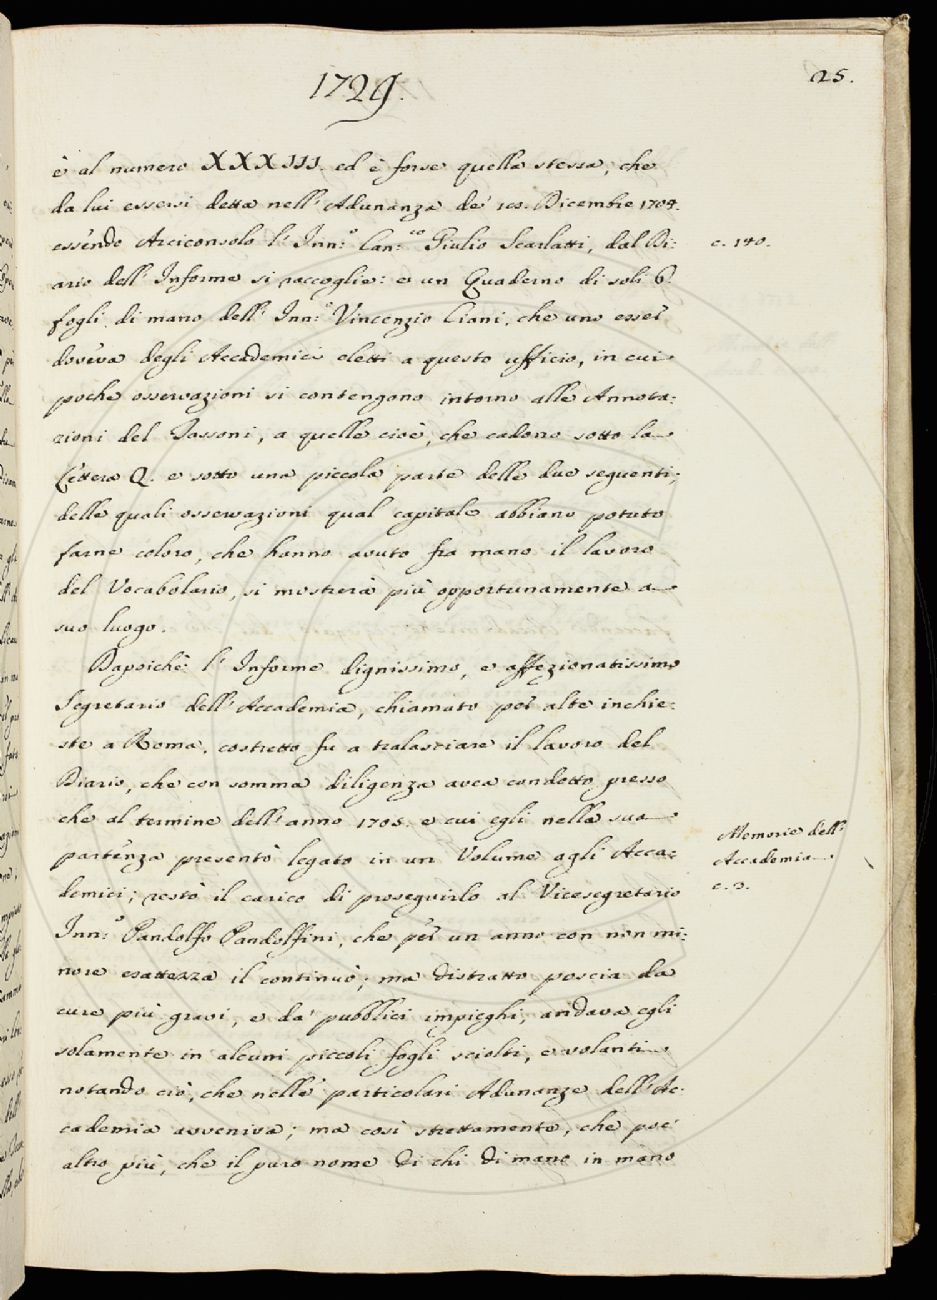 1729.
25.
è al numero XXXIII. ed è forse quella stessa, che
da lui essersi detta nell' Adunanza de' Dicembre 1704.
essendo Arciconsolo l' Inn:º Can:co Giulio Scarlatti, dal Di:
c. 140.
ario dell' Informe si raccoglie: e un Quaderno di soli 6.
fogli di mano dell' Inn:º Vincenzio Ciani, che uno esser
doveva degli Accademici eletti a questo uffizio, in cui
poche osservazioni si contengono intorno alle Annota:
zioni del Tassoni, a quelle cioè, che cadono sotto la
Lettera Q. e sotto una piccola parte delle due seguenti;
delle quali osservazioni qual capitale abbiano potuto
farne coloro, che hanno avuto fra mano il lavoro
del Vocabolario, si mostrerà più opportunamente a
suo luogo.
Dapoichè l' Informe dignissimo, e affezionatissimo
Segretario dell' Accademia, chiamato per alte inchie:
ste a Roma, costretto fu a tralasciare il lavoro del
Diario, che con somma diligenza avea condotto presso
che al termine dell' anno 1705. e cui egli nella sua
Memorie dell'
partenza presentò legato in un Volume agli Acca:
Accademia
demici; restò il carico di proseguirlo al Vicesegretario
c. 3.
Inn:º Pandolfo Pandolfini, che per un anno con non mi:
nore esattezza il continuò; ma distratto poscia da
cure più gravi, e da' pubblici impieghi, andava egli
solamente in alcuni piccoli fogli sciolti, e volanti
notando ciò, che nelle particolari Adunanze dell' Ac:
cademia avveniva; ma così strettamente, che poc'
altro più, che il puro nome di chi di mano in mano